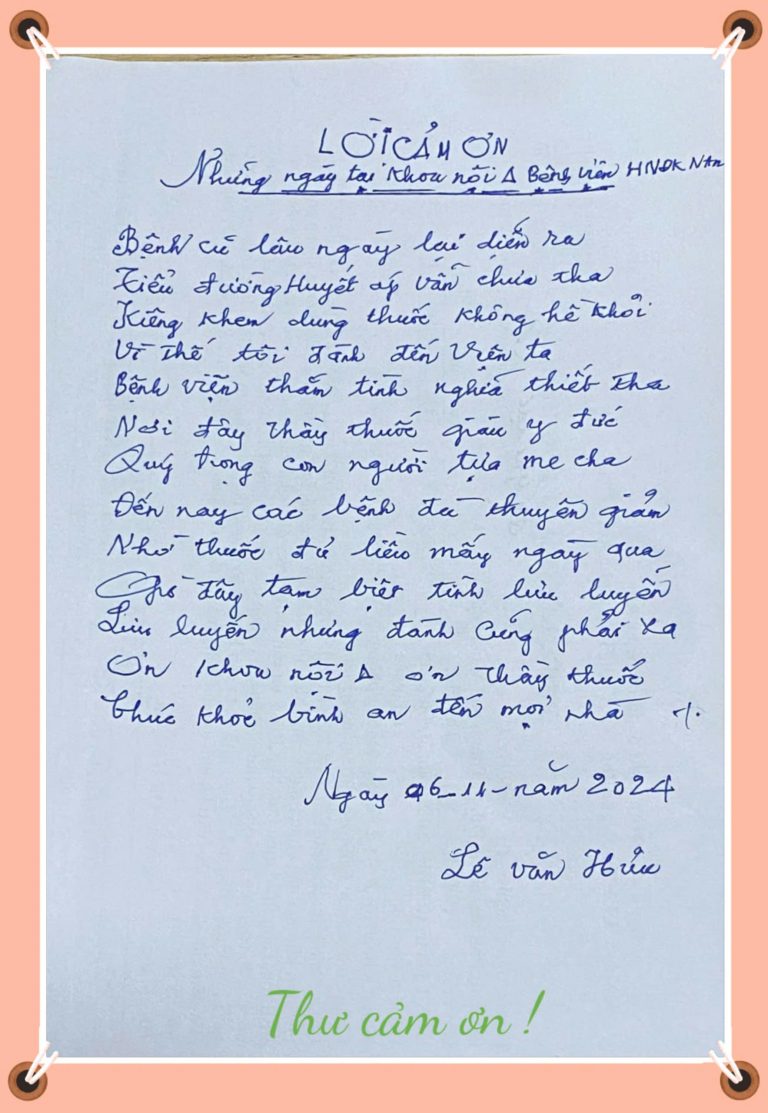 LỜI CẢM ƠN
Những ngày tại Khoa nội A Bệnh viện HNĐK NAn
Bệnh cũ lâu ngày lại diễn ra
Tiểu đường Huyết áp vẫn chưa tha
Kiêng khem dùng thuốc không hề khỏi
Vì thế tôi đành đến viện ta
Bệnh viện thắm tình nghĩa thiết tha
Nơi đây thầy thuốc giàu y đức
Quý trọng con người tựa mẹ cha
Đến nay các bệnh đã thuyên giảm
Nhờ thuốc đủ liều mấy ngày qua
Giờ đây tạm biệt tình lưu luyến
Lưu luyến nhưng đành cũng phải xa
Ơn Khoa nội A ơn thầy thuốc
Chúc khoẻ bình an đến mọi nhà ./.
Ngày 06-11-năm 2024
Lê văn Hữu
Thư cảm ơn !